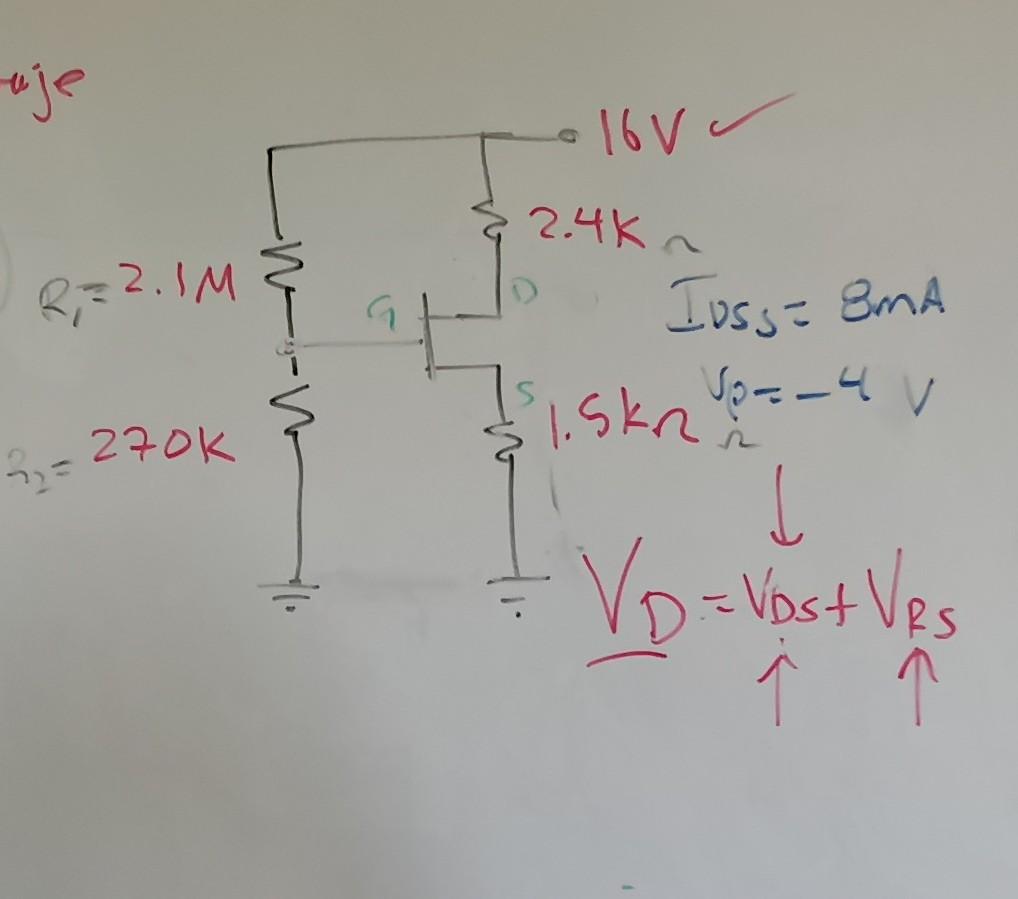 16V ✓
2.4K Ω
R₁= 2.1M
G
D
IDSS= 8mA
S
Vp=-4 V
1.5kΩ Ω
R₂= 270K
↓
VD=VDS+VRS
↑ ↑